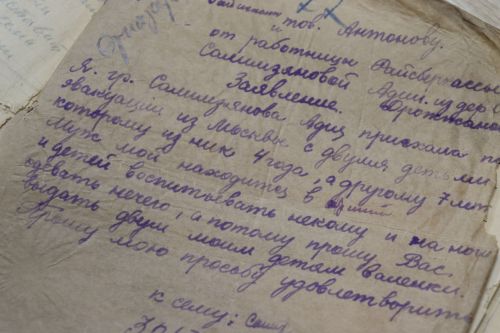 тов. Антонову.
от работницы Райсберкассы
Салимзяновой Адии. из дер.
Заявление.
Я, гр. Салимзянова Адия приехала по
эвакуации из Москвы с двумя детьми
которому из них 4 года, а другому 7 лет
муж мой находится в армии
и детей воспитывать некому и на ноги
одевать нечего, а потому прошу Вас
выдать двум моим детям валенки.
Прошу мою просьбу удовлетворить
к сему: